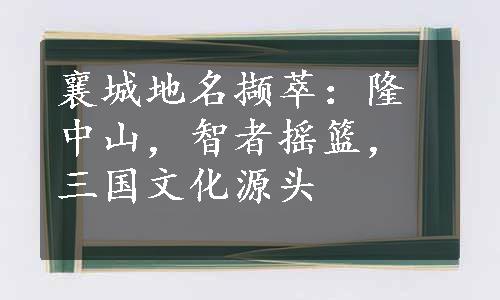 襄城地名撷萃：隆
中山，智者摇篮，
三国文化源头